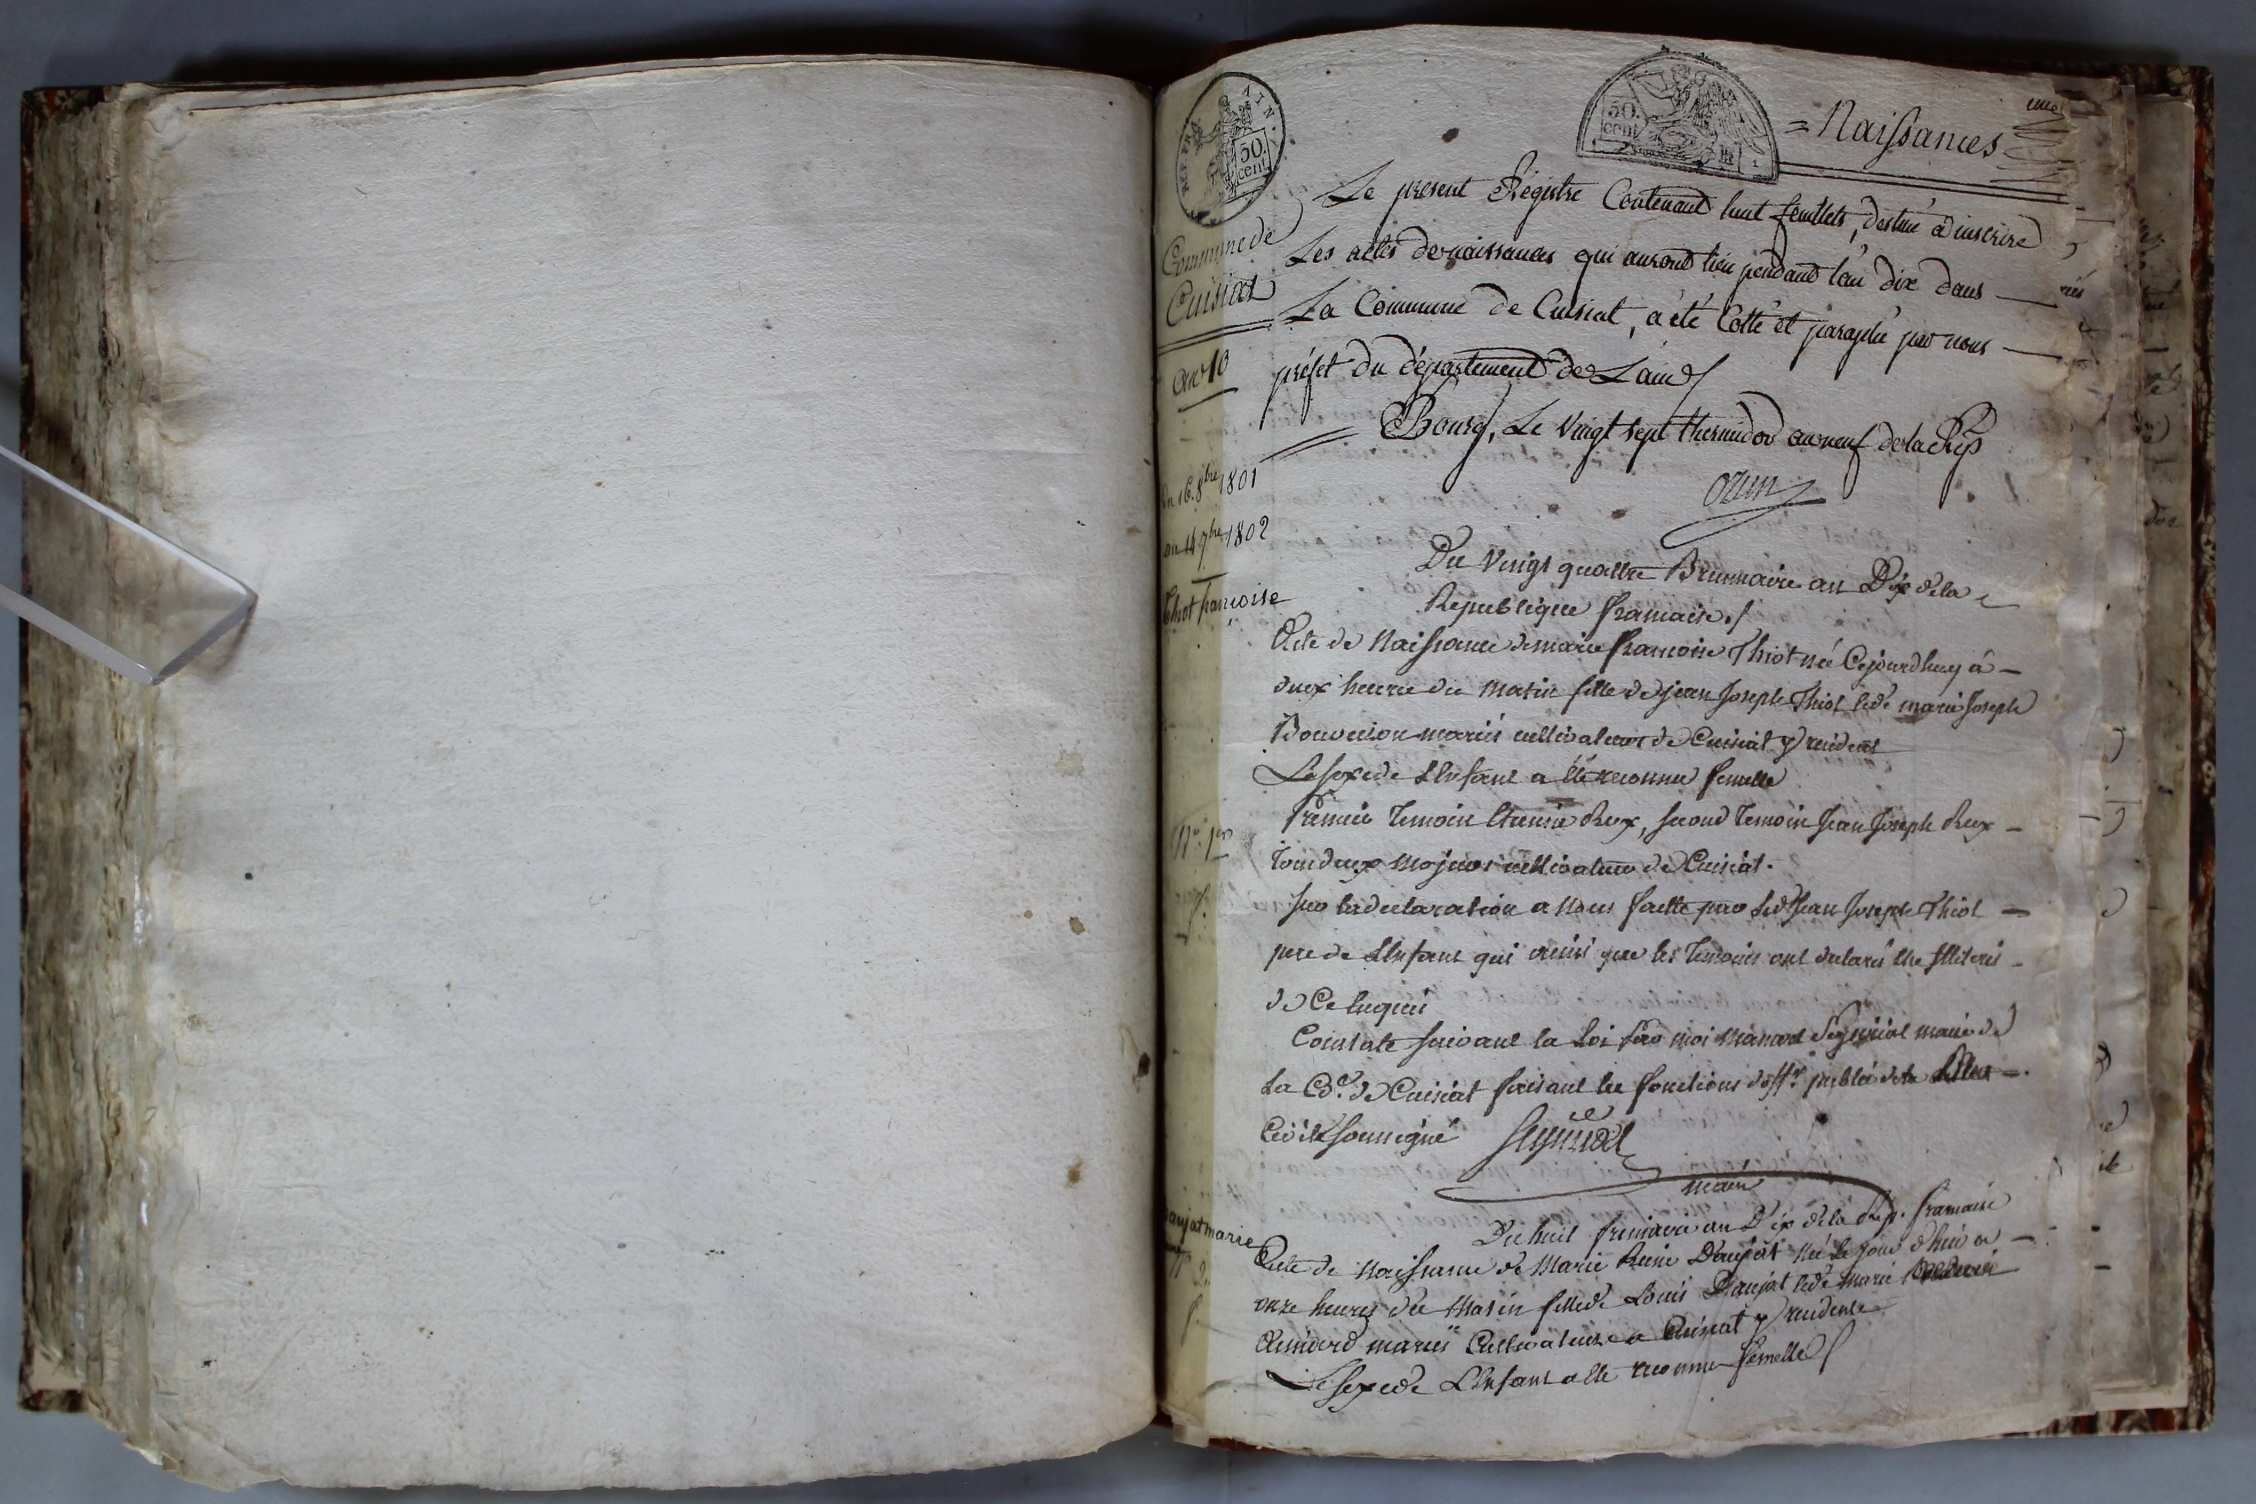 REP. FRA. AIN.
50. cent.
50. cent.
= Naissances
Commune de
Cuisiat
an 10
Le present Régistre Contenant huit feuillets, destiné à inscrire
Les actes de naissances qui auront lieu pendant l'an dix dans —
La Commune de Cuisiat, a été Cotté et paraphé par nous —
préfet du département de L'ain
Bourg, Le vingt sept thermidor an neuf de la Rép
ozun
16. 8bre 1801
au 14 7bre 1802
Thiot françoise
Du vingt quattre Brumaire an Dix de la
Republique francaise./
Acte de Naissance de marie francoise Thiot née Cejourdhuy à —
deux heures du matin fille de jean Joseph Thiot & de marie Joseph
mariés cultivateurs de Cuisiat y residents
Le sexe de L'Enfant a été reconnu femelle
N.o 1er
f.
Premier Temoin Etienne Rux, second Temoin Jean Joseph Rux —
Tous deux majeurs cultivateurs de Cuisiat.
sur la declaration a Nous faitte par led Jean Joseph Thiot —
pere de L'Enfant qui ainsi que les Temoins ont declaré être Illiterés —
de Ce Enquis
Constaté suivant la Loi par moi seignial maire de
La C.e de Cuisiat faisant les fonctions d'off.r public de la
Civil soussigné
maire
Daujat marie
2.
f.
Du huit frimaire an Dix de la Rep. francaise
Acte de Naissance de Marie Reine Daujat née Le jour d'hier a —
onze heures du Matin fille de Louis Daujat & de Marie
mariés Cultivateurs a Cuisiat y residents
Le sexe de L'Enfant a été reconnu femelle